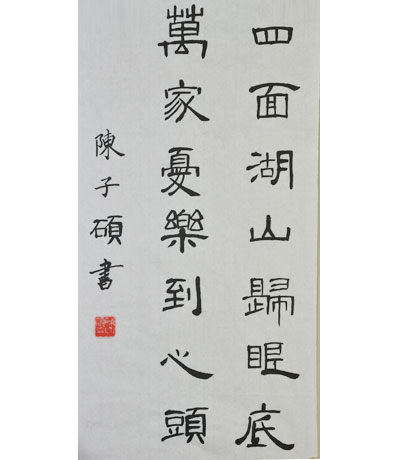 四面湖山歸眼底
萬家憂樂到心頭
陳子碩書